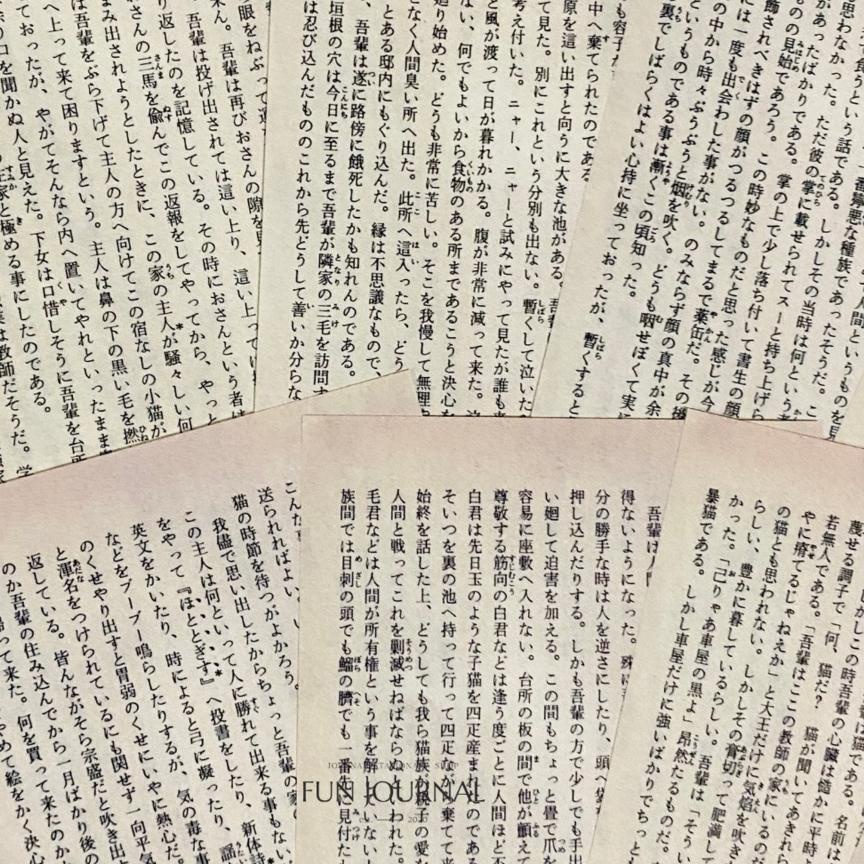 番獰悪な種族で
食うという話である。しかしその当時は何という考
思わなかった。ただ彼の掌に載せられてスーと持ち上げら
があったばかりである。掌の上で少し落ち付いて書生の顔
のの見始であろう。この時妙なものだと思った感じが今
飾されべきはずの顔がつるつるしてまるで薬缶だ。その後
には一度も出会わした事がない。のみならず顔の真中が余
の中から時々ぷうぷうと烟を吹く。どうも咽せぽくて実
というものである事は漸くこの頃知った。
裏でしばらくはよい心持に坐っておったが、暫くすると
中へ棄てられたのである。
原を這い出すと向うに大きな池がある。
て見た。別にこれという分別も出ない。暫くして泣いた
考え付いた。ニャー、ニャーと試みにやって見たが誰も来
と風が渡って日が暮れかかる。腹が非常に減って来た。
ない、何でもよいから食物のある所まであるこうと決心を
廻り始めた。どうも非常に苦しい。そこを我慢して無理
となく人間臭い所へ出た。此所へ這入ったら、どう
とある邸内にもぐり込んだ。縁は不思議なもので、
吾輩は遂に路傍に餓死したかも知れんのである。
垣根の穴は今日に至るまで吾輩が隣家の三毛を訪問す
は忍び込んだもののこれから先どうして善いか分らな
ん。吾輩は再びおさんの隙を見
吾輩は投げ出されては這い上り、這い上っては
り返したのを記憶している。その時におさんという者は
さんの三馬を偸んでこの返報をしてやってから、やっと
まみ出されようとしたときに、この家の主人が騒々しい何
は吾輩をぶら下げて主人の方へ向けてこの宿なしの小猫が
へ上って来て困りますという。主人は鼻の下の黒い毛を撚
ておったが、やがてそんなら内へ置いてやれといったまま
口を聞かぬ人と見えた。下女は口惜しそうに吾輩を台所
家と極める事にしたのである。
は教師だそうだ。
しこの時吾輩の心臓は慥かに平時
蔑せる調子で「何、猫だ? 猫が聞いてあきれ
若無人である。「吾輩はここの教師の家にいるの
やに瘠てるじゃねえか」と大王だけに気焰を吹き
の猫とも思われない。しかしその膏切って肥満し
らしい、豊かに暮しているらしい。吾輩は「そう
かった。「己りゃあ車屋の黒よ」昂然たるものだ。
暴猫である。しかし車屋だけに強いばかりでちっと
吾輩は人間
得ないようになった。殊に
分の勝手な時は人を逆さにしたり、頭へ袋を
押し込んだりする。しかも吾輩の方で少しでも手出
い廻して迫害を加える。この間もちょっと畳で爪を
容易に座敷へ入れない。台所の板の間で他が顫えて
尊敬する筋向の白君などは逢う度ごとに人間ほど不
白君は先日玉のような子猫を四疋産まれたのである
そいつを裏の池へ持って行って四疋ながら棄てて来
始終を話した上、どうしても我ら猫族が親子の愛を
人間と戦ってこれを剿滅せねばならぬといわれた。
毛君などは人間が所有権という事を解していない
族間では目刺の頭でも鰡の臍でも一番先に見付けた
送られればよい。
猫の時節を待つがよかろう。
我儘で思い出したからちょっと吾輩の家の
この主人は何といって人に勝れて出来る事もない
をやって『ほととぎす』へ投書をしたり、新体詩
英文をかいたり、時によると弓に凝ったり、謡
などをブーブー鳴らしたりするが、気の毒な事
のくせやり出すと胃弱のくせにいやに熱心だ。
と渾名をつけられているにも関せず一向平気
返している。皆んながそら宗盛だと吹き出
のか吾輩の住み込んでから一月ばかり後の
って来た。何を買って来たのか
やめて絵をかく決心
FUN JOURNAL